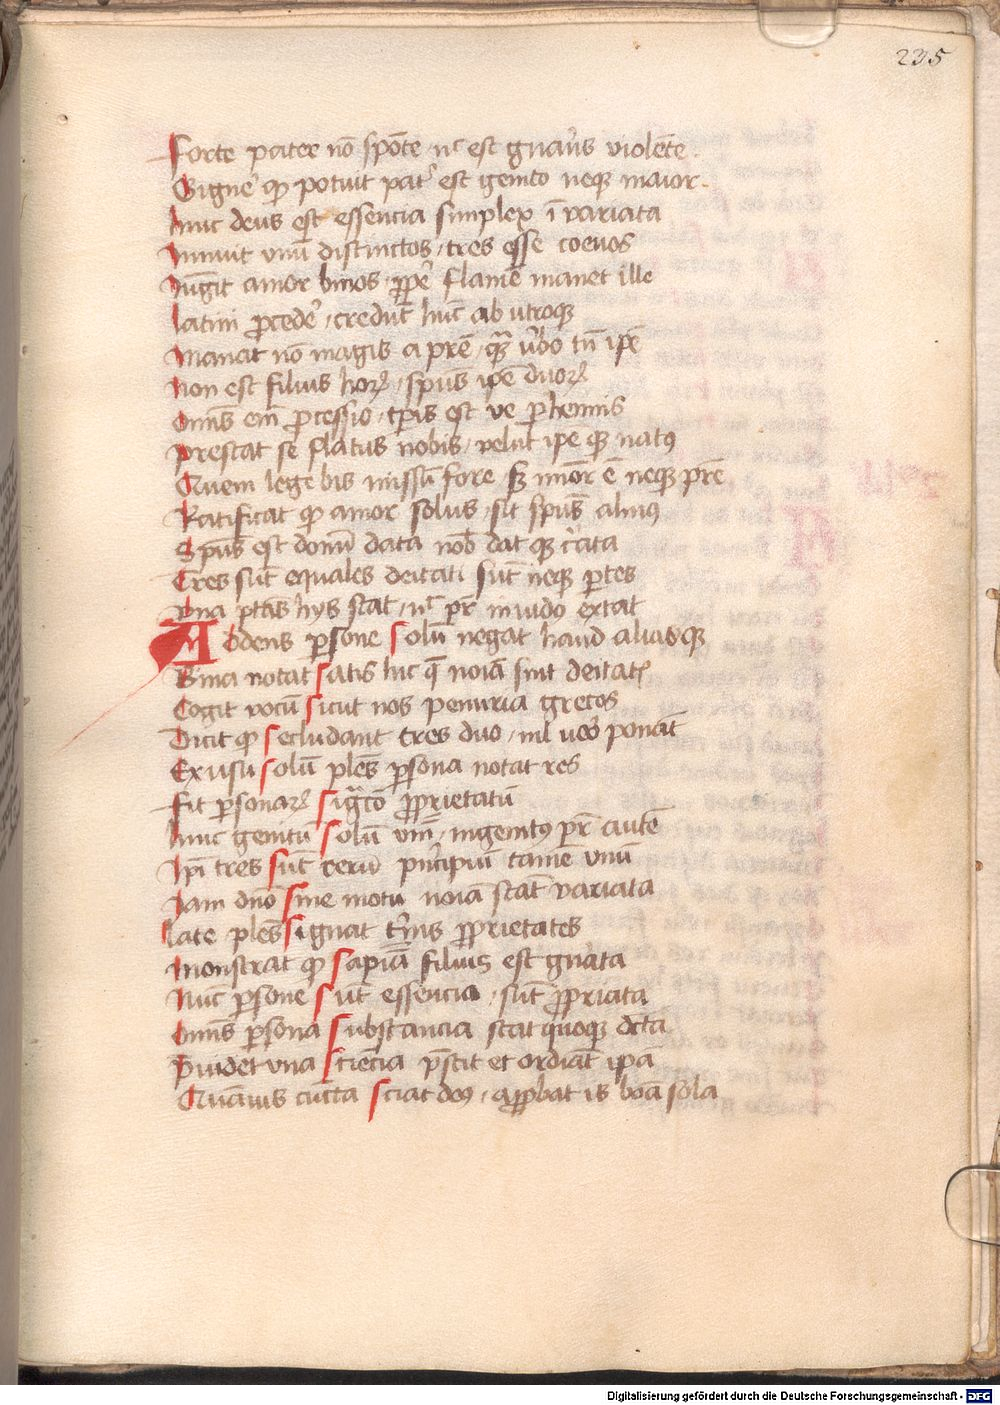 235
Forte pater nō spōte nc est gnarus violēte.
Gigne' qȝ potuit pat' est genito neqȝ maior.
Huic deus est essencia simplex ī variata
Innuit vnū distinctos, tres esse coeuos
Iūgit amor binos, flamē manet ille
latini procede', credūt hūc ab utroqȝ
Manat nō magis a prē, qȝ v'bo tn̄ ipē
Non est filius hoꝝ, spūs ipē duoꝝ
Omīs em̄ processio, tpīs est ve perhennis
Prestat se flatus nobis, velut ipē qȝ natꝰ
Quem lege bis missū fore, sȝ mīor ē neqȝ prē
Ratificat qȝ amor solus, sit spūs almꝰ
Spūs est donū data nob dat qȝ c'ata
Tres sūt equales deitati sūt neqȝ ptes
Vna ptās hys stat, nc pr̄ inuido extat
Addens psone Solū negat haud alias qȝ
Bina notat Satis hic noīa sint deitatꝭ
Cogit vocū Sicut nos penuria grecos
Dicit qȝ Secludant tres duo, nil vero ponāt
Ex usu Solū ples psona notat res
Fit psonaꝝ Sigͣtō pprietatū
Huic genitū Solū vnū, ingenitꝰ pr̄ autē
Ipī tres Sūt rerū pncipiū tamē vnū
Iam dnō Sine motu noīa stāt variata
late ples Signat t'nis pprietates
Monstrat qȝ Sapiā filius est gnata
Nunc psone Sūt essencia, sūt ppriata
Omīs psona Substancia stat quoqȝ dcta
Puidet vna Sciēcia pstit et ordiāt ipā
Quāuis cūcta Sciat deꝰ, approbat is bōa sola
Digitalisierung gefördert durch die Deutsche Forschungsgemeinschaft - DFG